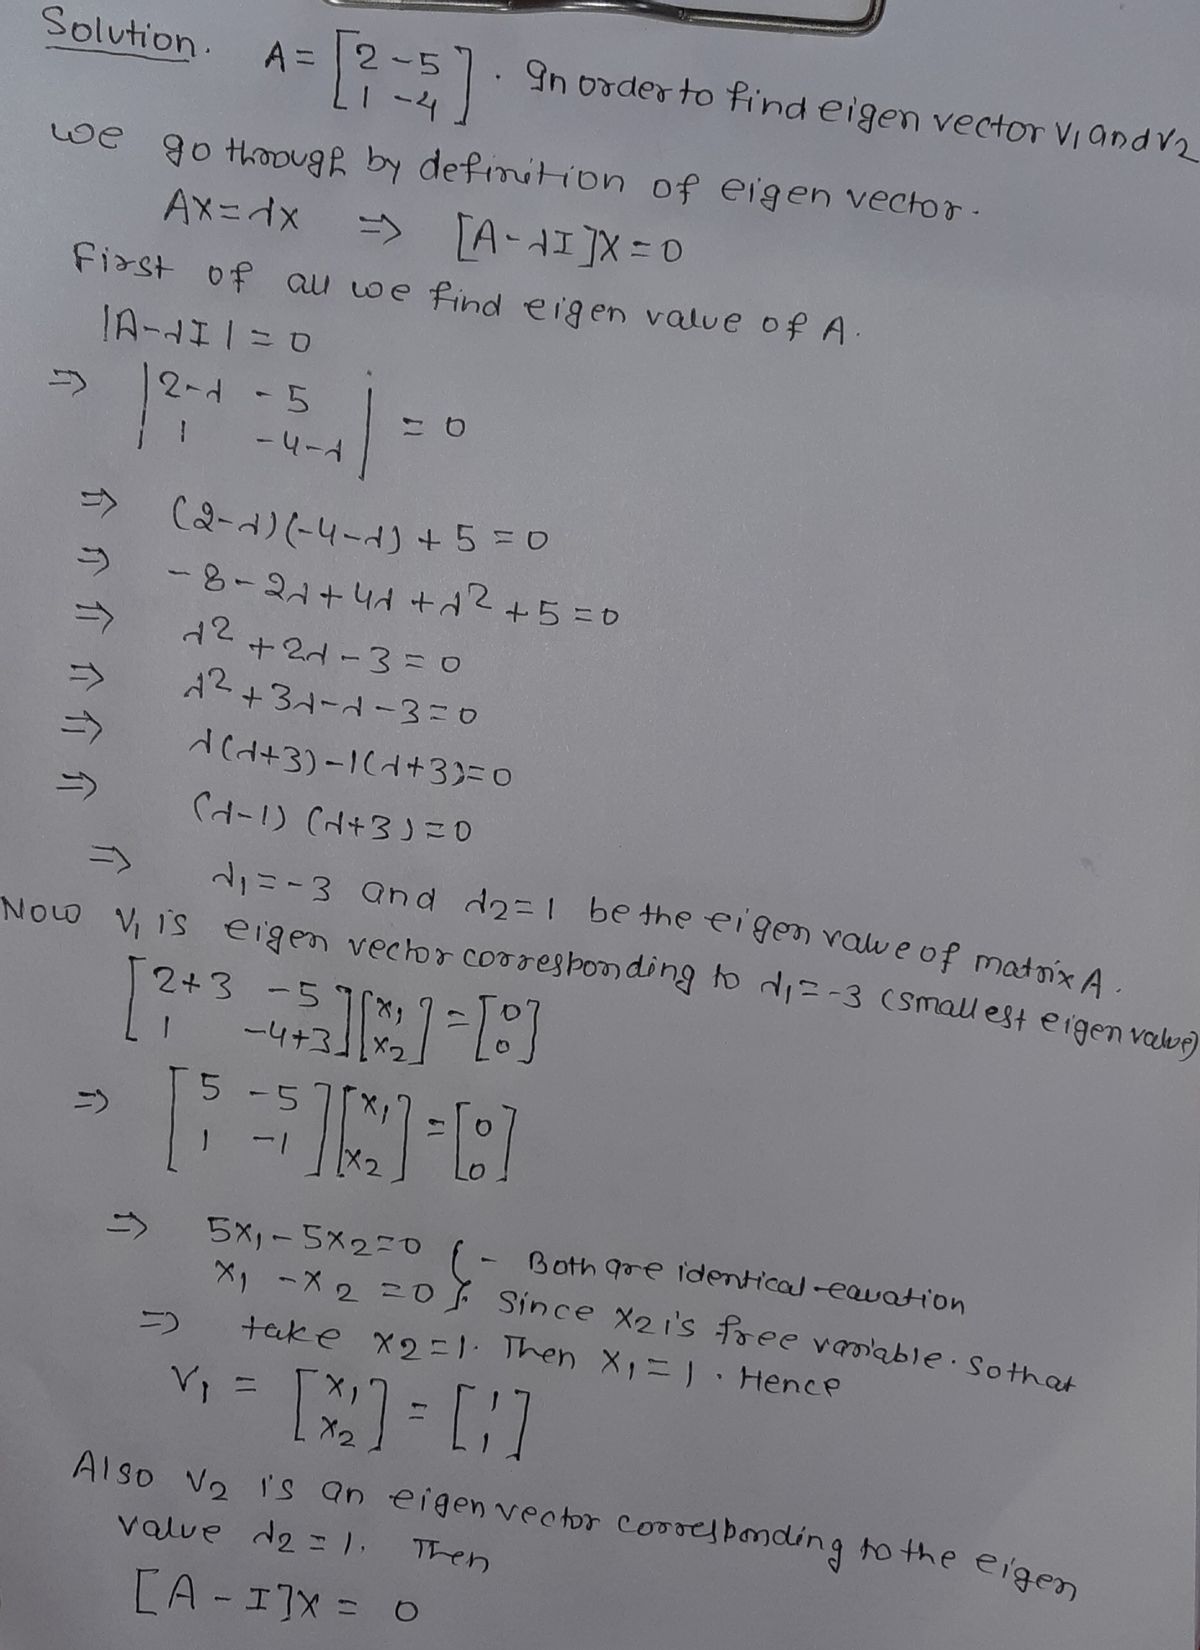 Solution. A = [2 -5
1 -4]. In order to find eigen vector V1 and V2
we go through by definition of eigen vector.
AX = λX ⇒ [A-λI]X = 0
First of all we find eigen value of A.
|A-λI| = 0
⇒ |2-λ -5
1 -4-λ| = 0
⇒ (2-λ)(-4-λ) + 5 = 0
⇒ -8-2λ+4λ+λ²+5 = 0
⇒ λ²+2λ-3 = 0
⇒ λ²+3λ-λ-3 = 0
⇒ λ(λ+3)-1(λ+3) = 0
⇒ (λ-1)(λ+3) = 0
⇒ λ1 = -3 and λ2 = 1 be the eigen value of matrix A.
Now V1 is eigen vector corresponding to λ1 = -3 (smallest eigen value)
[2+3 -5
1 -4+3][x1
x2] = [0
0]
⇒ [5 -5
1 -1][x1
x2] = [0
0]
⇒ 5x1 - 5x2 = 0 } - Both are identical equation
x1 - x2 = 0 }. Since x2 is free variable. So that
⇒ take x2 = 1. Then x1 = 1. Hence
V1 = [x1
x2] = [1
1]
Also V2 is an eigen vector corresponding to the eigen
value λ2 = 1. Then
[A-I]X = 0